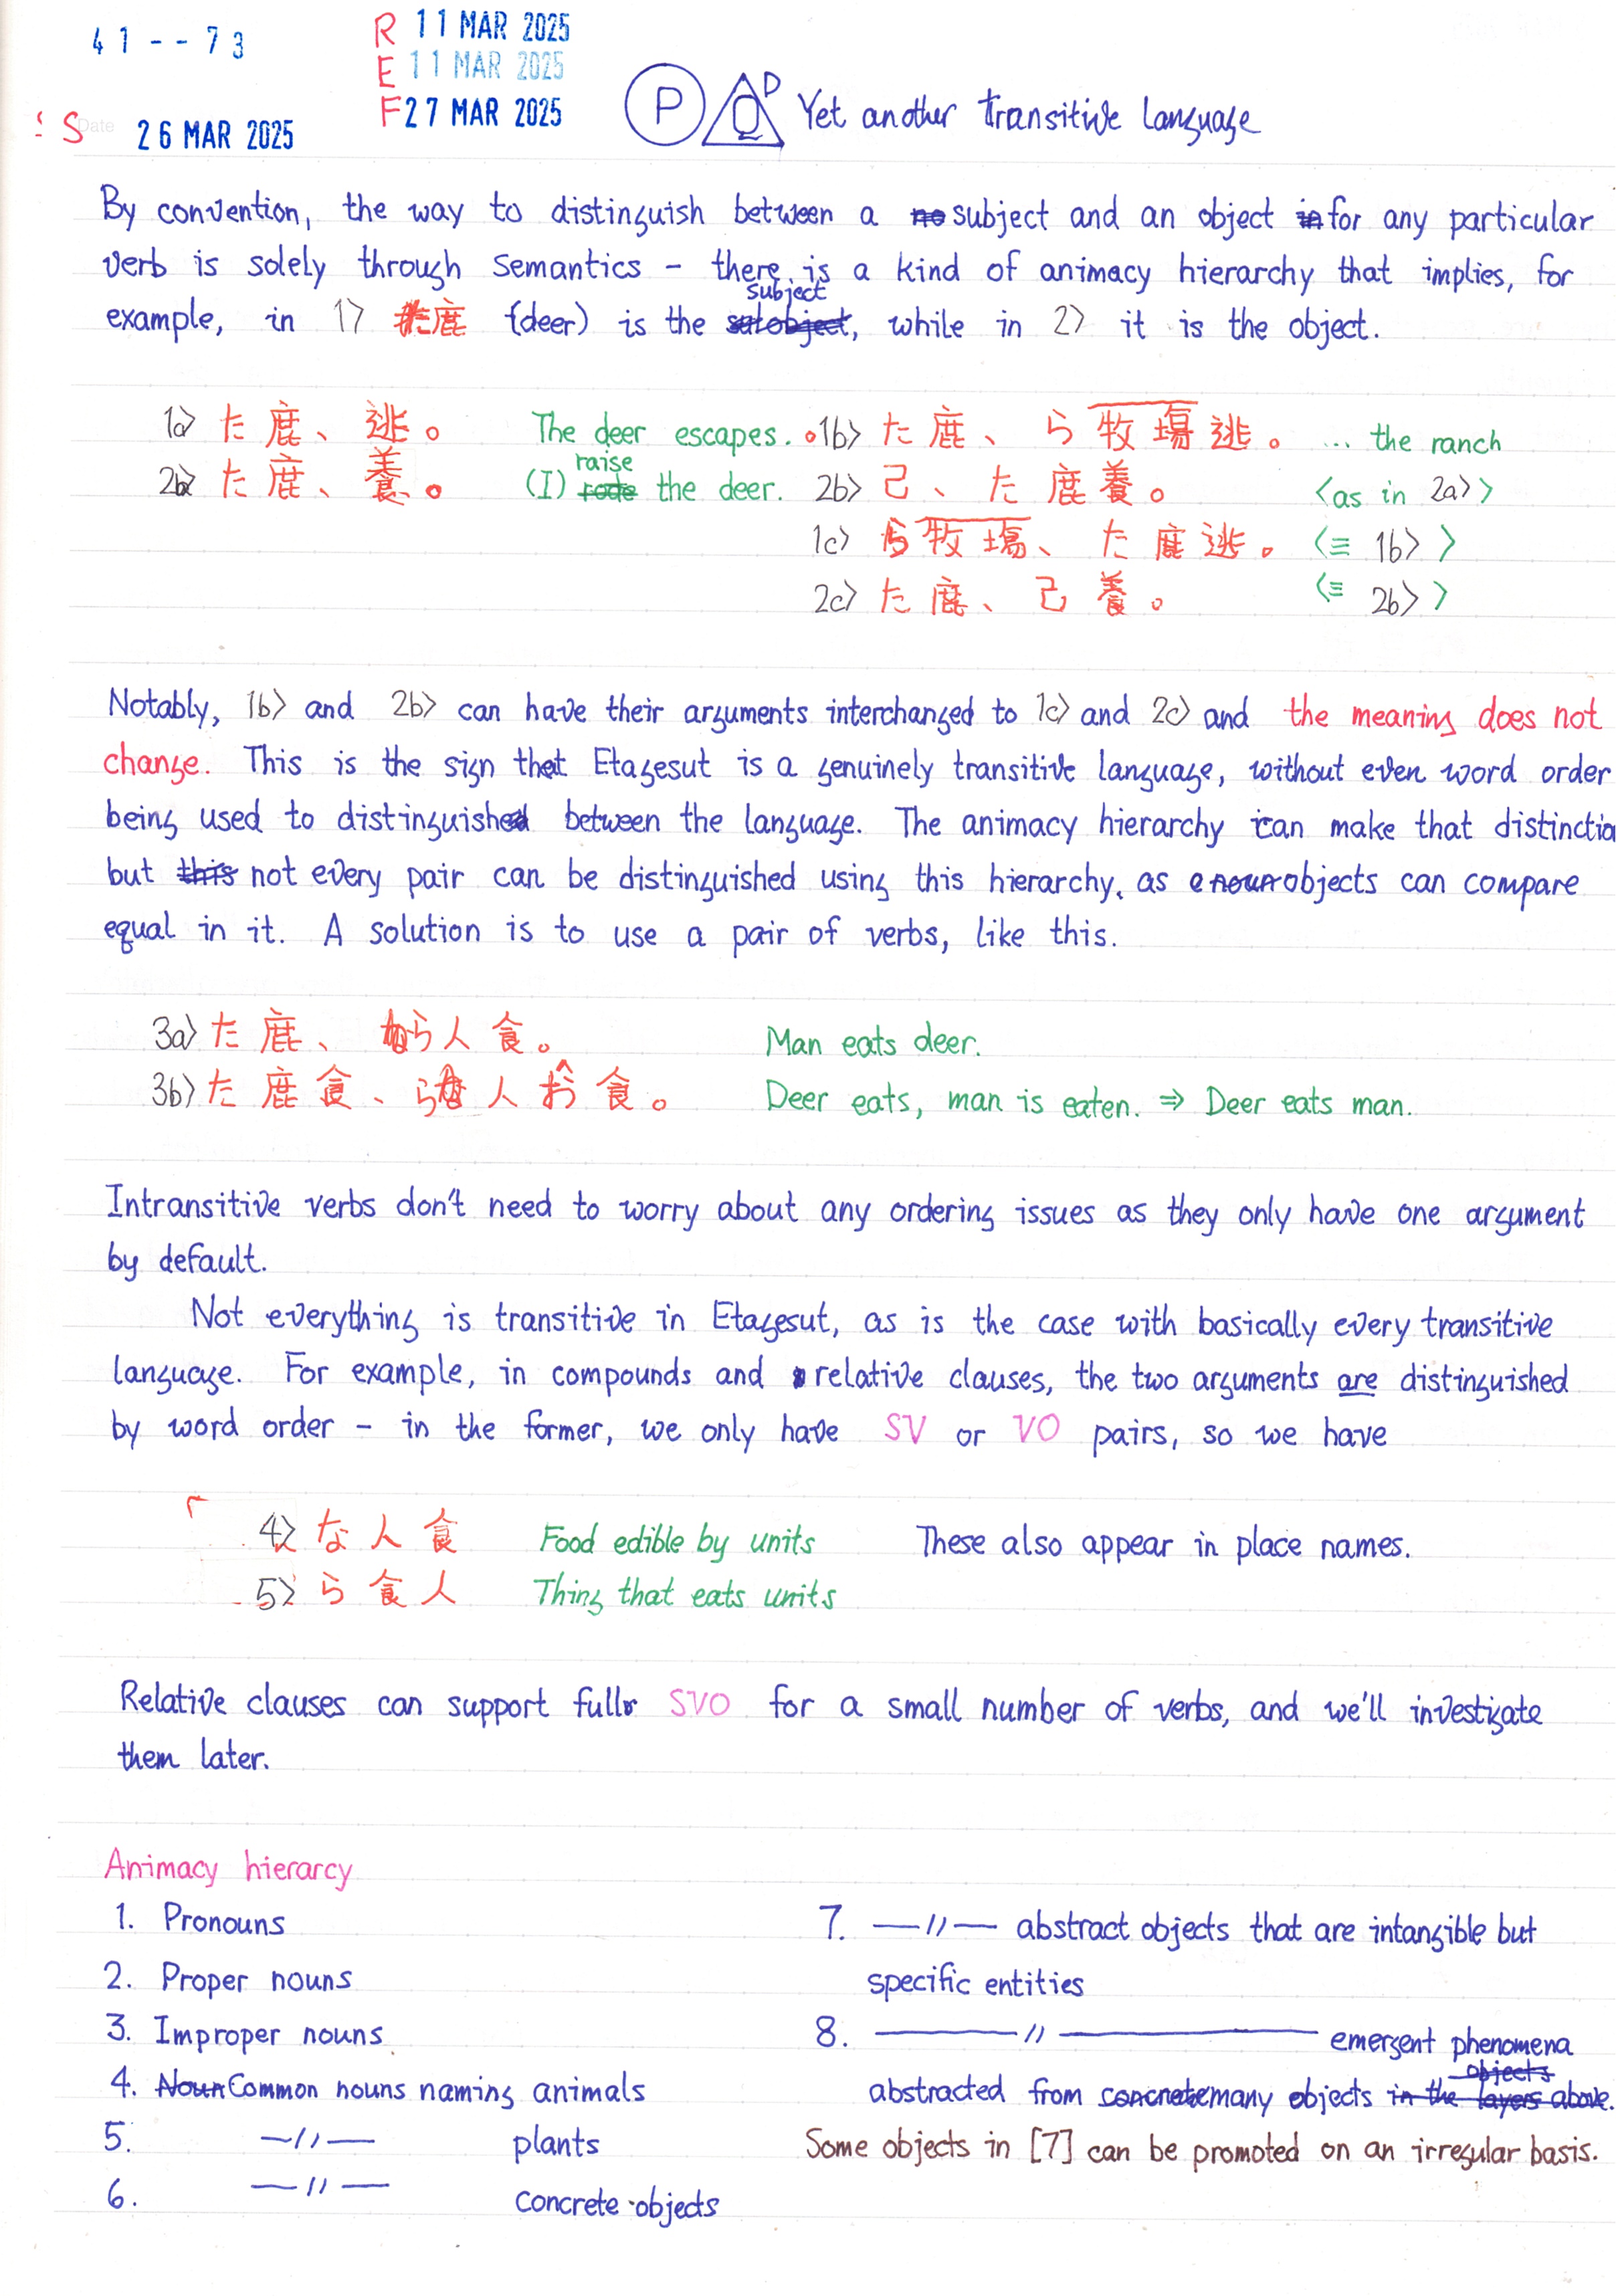 41--73
R 11 MAR 2025
E 11 MAR 2025
F 27 MAR 2025
S Date 26 MAR 2025
P Q P Yet another transitive language
By convention, the way to distinguish between a no subject and an object in for any particular
verb is solely through semantics – there is a kind of animacy hierarchy that implies, for
example, in 1〉 た鹿 (deer) is the subject, while in 2〉 it is the object.
1a〉 た鹿、逃。 The deer escapes. 1b〉 た鹿、ら牧場逃。 ... the ranch
2a〉 た鹿、養。 (I) rode raise the deer. 2b〉 己、た鹿養。 〈as in 2a〉〉
1c〉 ら牧場、た鹿逃。 〈≡ 1b〉〉
2c〉 た鹿、己養。 〈≡ 2b〉〉
Notably, 1b〉 and 2b〉 can have their arguments interchanged to 1c〉 and 2c〉 and the meaning does not
change. This is the sign that Etagesut is a genuinely transitive language, without even word order
being used to distinguish between the language. The animacy hierarchy can make that distinctio
but this not every pair can be distinguished using this hierarchy, as objects can compare
equal in it. A solution is to use a pair of verbs, like this.
3a〉 た鹿、ら人食。 Man eats deer.
3b〉 た鹿食、ら人お食。 Deer eats, man is eaten. ⇒ Deer eats man.
Intransitive verbs don't need to worry about any ordering issues as they only have one argument
by default.
Not everything is transitive in Etagesut, as is the case with basically every transitive
language. For example, in compounds and relative clauses, the two arguments are distinguished
by word order – in the former, we only have SV or VO pairs, so we have
4〉 な人食 Food edible by units These also appear in place names.
5〉 ら食人 Thing that eats units
Relative clauses can support full SVO for a small number of verbs, and we'll investigate
them later.
Animacy hierarcy
1. Pronouns
2. Proper nouns
3. Improper nouns
4. Noun Common nouns naming animals
5. —〃— plants
6. —〃— concrete objects
7. —〃— abstract objects that are intangible but
specific entities
8. —〃— emergent phenomena
abstracted from concrete many objects in the layers objects above.
Some objects in [7] can be promoted on an irregular basis.